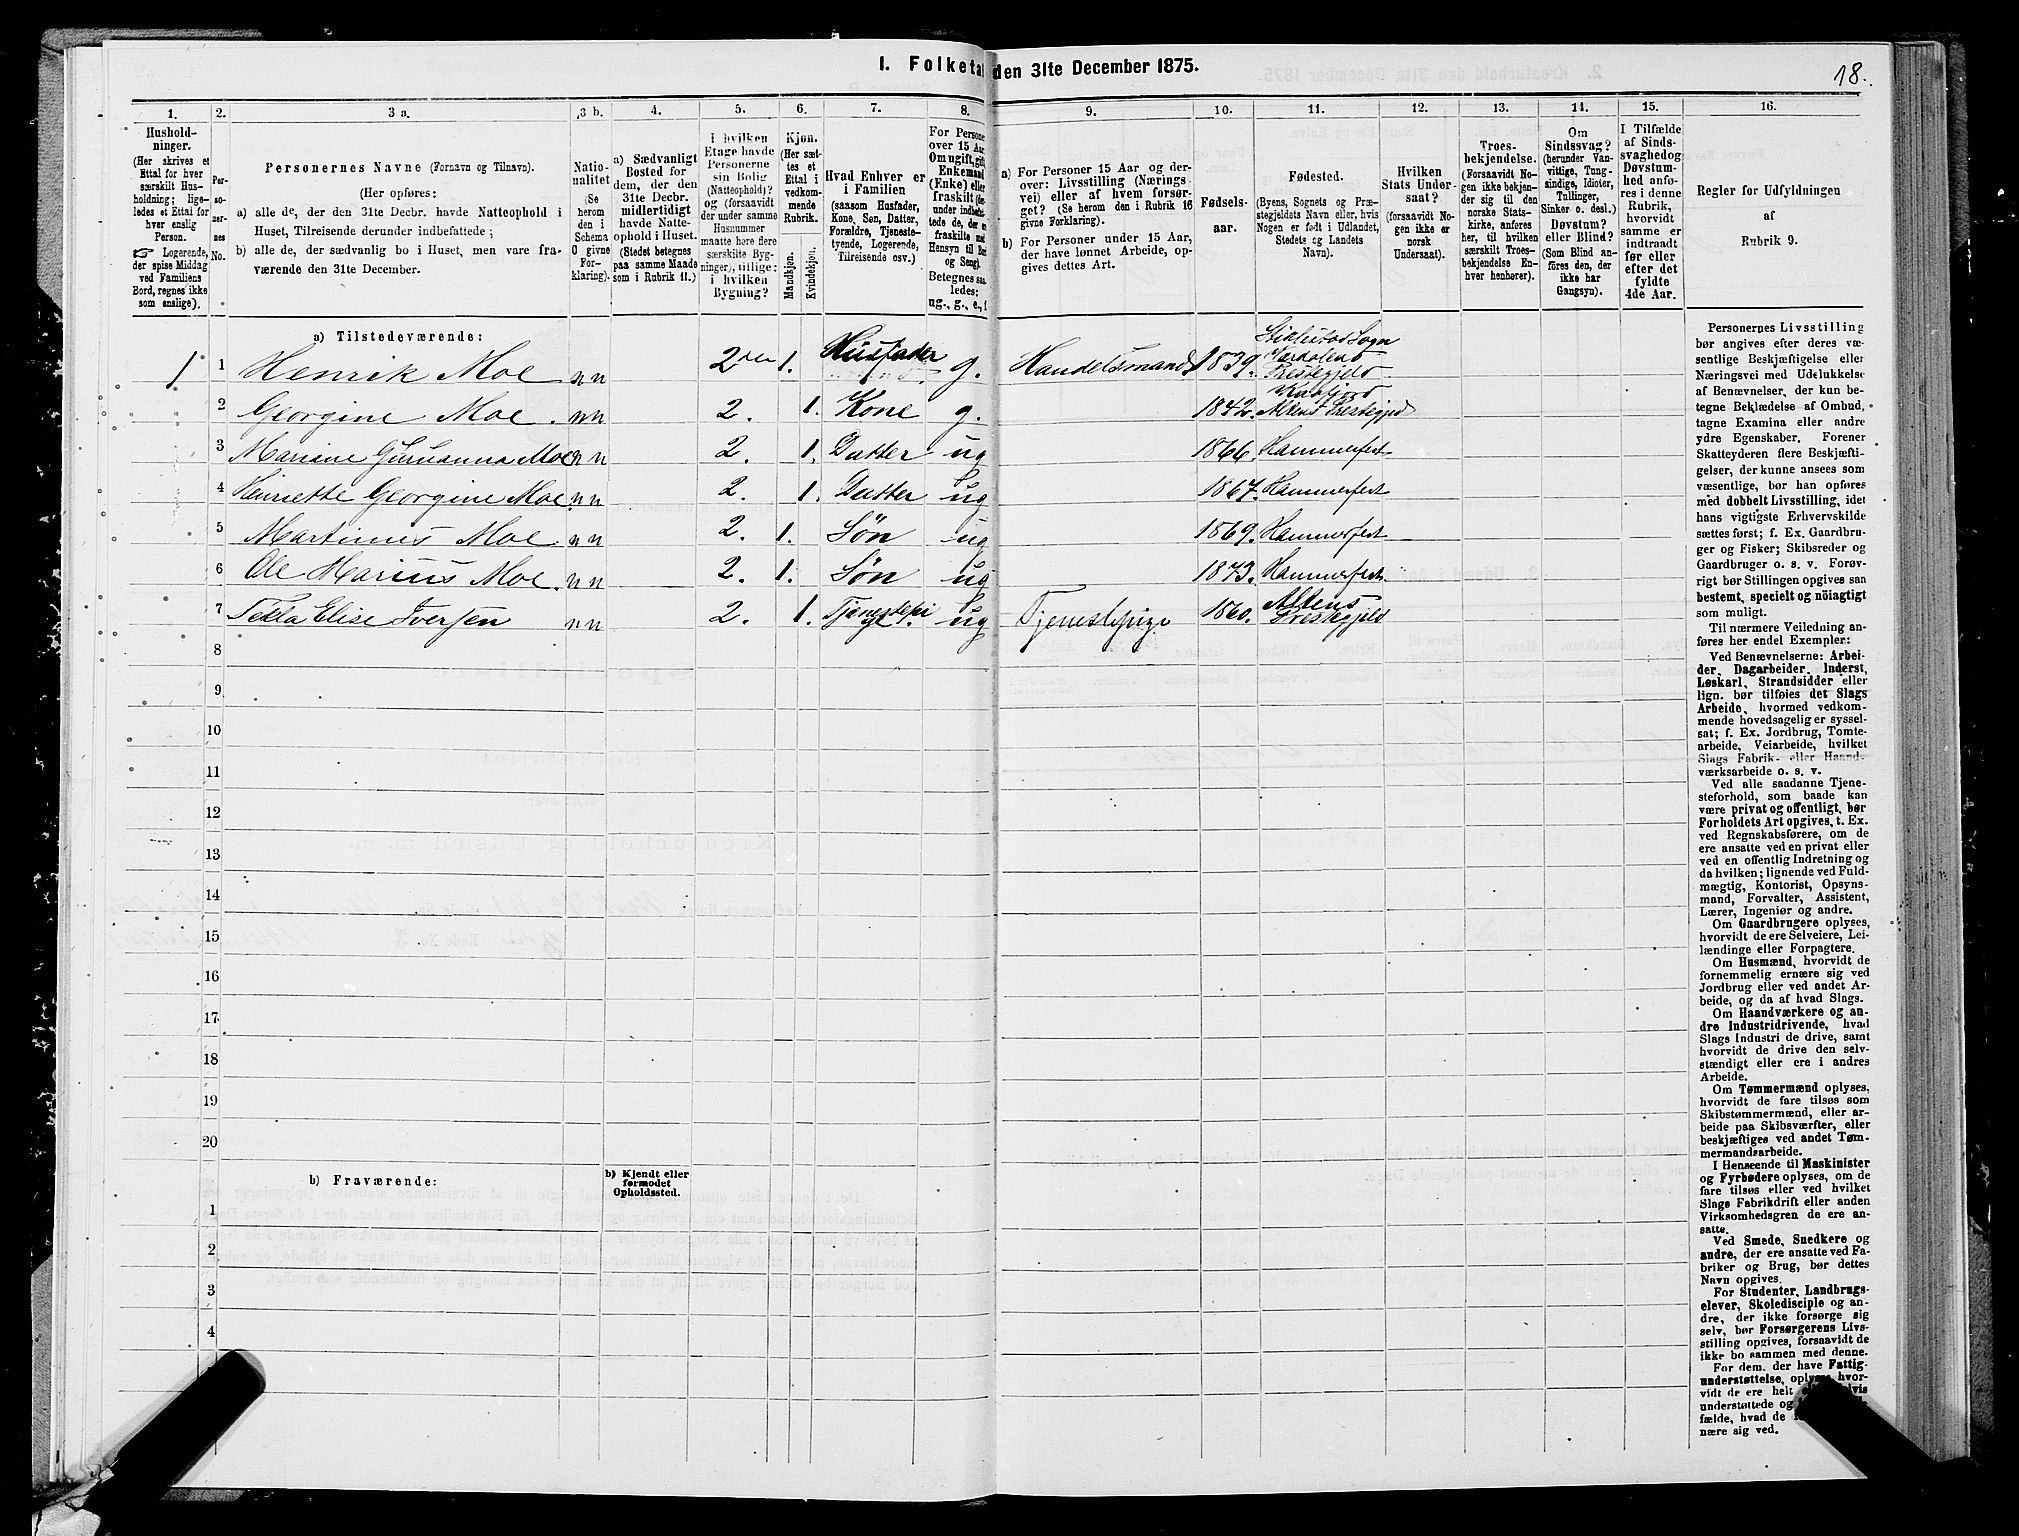 I. Folketal den 31te December 1875.
18.
1.
Hushold-
ninger.
(Her skrives et
Ettal for hver
særskilt Hus-
holdning; lige-
ledes et Ettal for
hver enslig
Person.
☞ Logerende,
der spise Middag
ved Familiens
Bord, regnes ikke
som enslige).
2.
Per-
so-
ner-
nes
No.
3 a.
Personernes Navne (Fornavn og Tilnavn).
(Her opføres:
a) alle de, der den 31te Decbr. havde Natteophold i
Huset, Tilreisende derunder indbefattede;
b) alle de, der sædvanlig bo i Huset, men vare fra-
værende den 31te December.
3 b.
Natio-
nalitet
(Se
herom
den i
Schema
O givne
For-
klaring).
4.
a) Sædvanligt
Bosted for
dem, der den
31te Decbr.
midlertidigt
havde Natte-
ophold i Huset.
(Stedet betegnes
paa samme Maade
som i Rubrik 11.)
5.
I hvilken
Etage havde
Personerne
sin Bolig
(Natteophold)?
og (forsaavidt
der under samme
Husnummer
maatte høre flere
særskilte Byg-
ninger), tillige:
i hvilken
Bygning?
6.
Kjøn.
(Her sæt-
tes et
Ettal i
vedkom-
mende
Rubrik.
Mandkjøn.
Kvindekjøn.
7.
Hvad Enhver er
i Familien
(saasom Husfader,
Kone, Søn, Datter,
Forældre, Tjeneste-
tyende, Logerende,
Tilreisende osv.)
8.
For Persone
over 15 Aar
Om ugift, gift
Enkemand
(Enke) eller
fraskilt
Betegnes saa-
ledes:
ug., g., e., f.
9.
a) For Personer 15 Aar og der-
over: Livsstilling (Nærings
vei) eller af hvem forsør-
get? (Se herom den i Rubrik 16
givne Forklaring).
b) For Personer under 15 Aar,
der have lønnet Arbeide, op-
gives dettes Art.
10.
Fødsels-
aar.
11.
Fødested.
(Byens, Sognets og Præ-
stegjeldets Navn eller, hvis
Nogen er født i Udlandet,
Stedets og Landets
Navn).
12.
Hvilken
Stats Under-
saat?
(forsaavidt No-
gen ikke er
norsk
Undersaat).
13.
Troes-
bekjendelse.
(Forsaavidt No-
gen ikke bekjen-
der sig til den
norske Stats-
kirke, anføres
her, til hvilken
særskilt Troes-
bekjendelse En-
hver henhører).
14.
Om
Sindssvag?
(herunder Van-
vittige, Tung-
sindige, Idioter,
Tullinger,
Sinker o. desl.)
Døvstum?
eller Blind?
(Som Blind an-
føres den, der
ikke har
Gangsyn).
15.
I Tilfælde
af Sinds-
svaghedog
Døvstum-
hed anfø-
res i denne
Rubrik,
hvorvidt
samme er
indtraadt
før eller
efter det
fyldte
4de Aar.
16.
Regler for Udfyldningen
af
Rubrik 9.
a) Tilstedeværende:
1 1 Henrik Moe n n 2den 1. Husfader g. Handelsmand 1839. Stiklestad Sogn Værdalens Prestegjeld
2 Georgine Moe. n n 2. 1. Kone g. 1842. Kaafjord Altens Prestegjed
3 Mariane Moe n n 2. 1. Datter ug 1866. Hammerfest
4 Henriette Georgine Moe n n 2. 1. Datter ug 1867. Hammerfest
5 Martinus Moe. n n 2. 1. Søn ug 1869. Hammerfest
6 Ole Marius Moe. n n 2. 1. Søn ug 1873. Hammerfest.
7 Tekla Elise Iversen n n 2. 1. Tjenestepige. ug Tjenestepige 1860. Altens Prestegjeld
8
9
10
11
12
13
14
15
16
17
18
19
20
b) Fraværende:
b) Kjendt eller
formodet
Opholdssted.
1
2
3
4
Personernes Livsstilling
bør angives efter deres væ-
sentlige Beskjæftigelse eller
Næringsvei med Udelukkelse
af Benævnelser, der kun be-
tegne Beklædelse af Ombud,
tagne Examina eller andre
ydre Egenskaber. Forener
Skatteyderen flere Beskjæfti-
gelser, der kunne ansees som
væsentlige, bør han opføres
med dobbelt Livsstilling, idet
hans vigtigste Erhvervskilde
sættes først; f. Ex. Gaardbru-
ger og Fisker; Skibsreder og
Gaardbruger o. s. v. Forøv-
rigt bør Stillingen opgives saa
bestemt, specielt og nöiagtigt
som muligt.
Til nærmere Veiledning an-
føres her endel Exempler:
Ved Benævnelserne: Arbei-
der, Dagarbeider, Inderst,
Løskarl, Strandsidder eller
lign. bør tilføies det Slags
Arbeide, hvormed vedkom-
mende hovedsagelig er syssel-
sat; f. Ex. Jordbrug, Tomte-
arbeide, Veiarbeide, hvilket
Slags Fabrik- eller Haand-
værksarbeide o. s. v.
Ved alle saadanne Tjene-
steforhold, som baade kan
være privat og offentligt, bør
Forholdets Art opgives, t. Ex.
ved Regnskabsførere, om de
ere ansatte ved en privat eller
ved en offentlig Indretning og
da hvilken; lignende ved Fuld-
mægtig, Kontorist, Opsyns-
mand, Forvalter, Assistent,
Lærer, Ingeniør og andre.
Om Gaardbrugere oplyses,
hvorvidt de ere Selveiere, Lei-
lændinge eller Forpagtere.
Om Husmænd, hvorvidt de
fornemmelig ernære sig ved
Jordbrug eller ved andet Ar-
beide, og da af hvad Slags.
Om Haandværkere og an-
dre Industridrivende, hvad
Slags Industri de drive, samt
hvorvidt de drive den selv-
stændigt eller ere i andres
Arbeide.
Om Tømmermænd oplyses,
hvorvidt de fare tilsøs som
Skibstømmermænd, eller ar-
beide paa Skibsværfter, eller
beskjæftiges ved andet Tøm-
mermandsarbeide.
I Henseende til Maskinister
og Fyrbødere oplyses, om de
fare tilsøs eller ved hvilket
Slags Fabrikdrift eller anden
Virksomhedsgren de ere an-
satte.
Ved Smede, Snedkere og
andre, der ere ansatte ved Fa-
briker og Brug, bør dettes
Navn opgives.
For Studenter, Landbrugs-
elever, Skoledisciple og an-
dre, der ikke forsørge sig
selv, bør Forsørgerens Livs-
stilling opgives, forsaavidt de
ikke bo sammen med denne.
For dem, der have Fattig-
understøttelse, oplyses hvor-
vidt de ere helt
understøttede og
fælde, hvad de
nære sig ved.